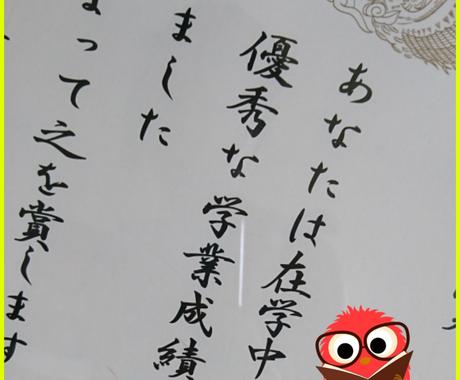 あなたは在学中
優秀な学業成績
ました
って之を賞します